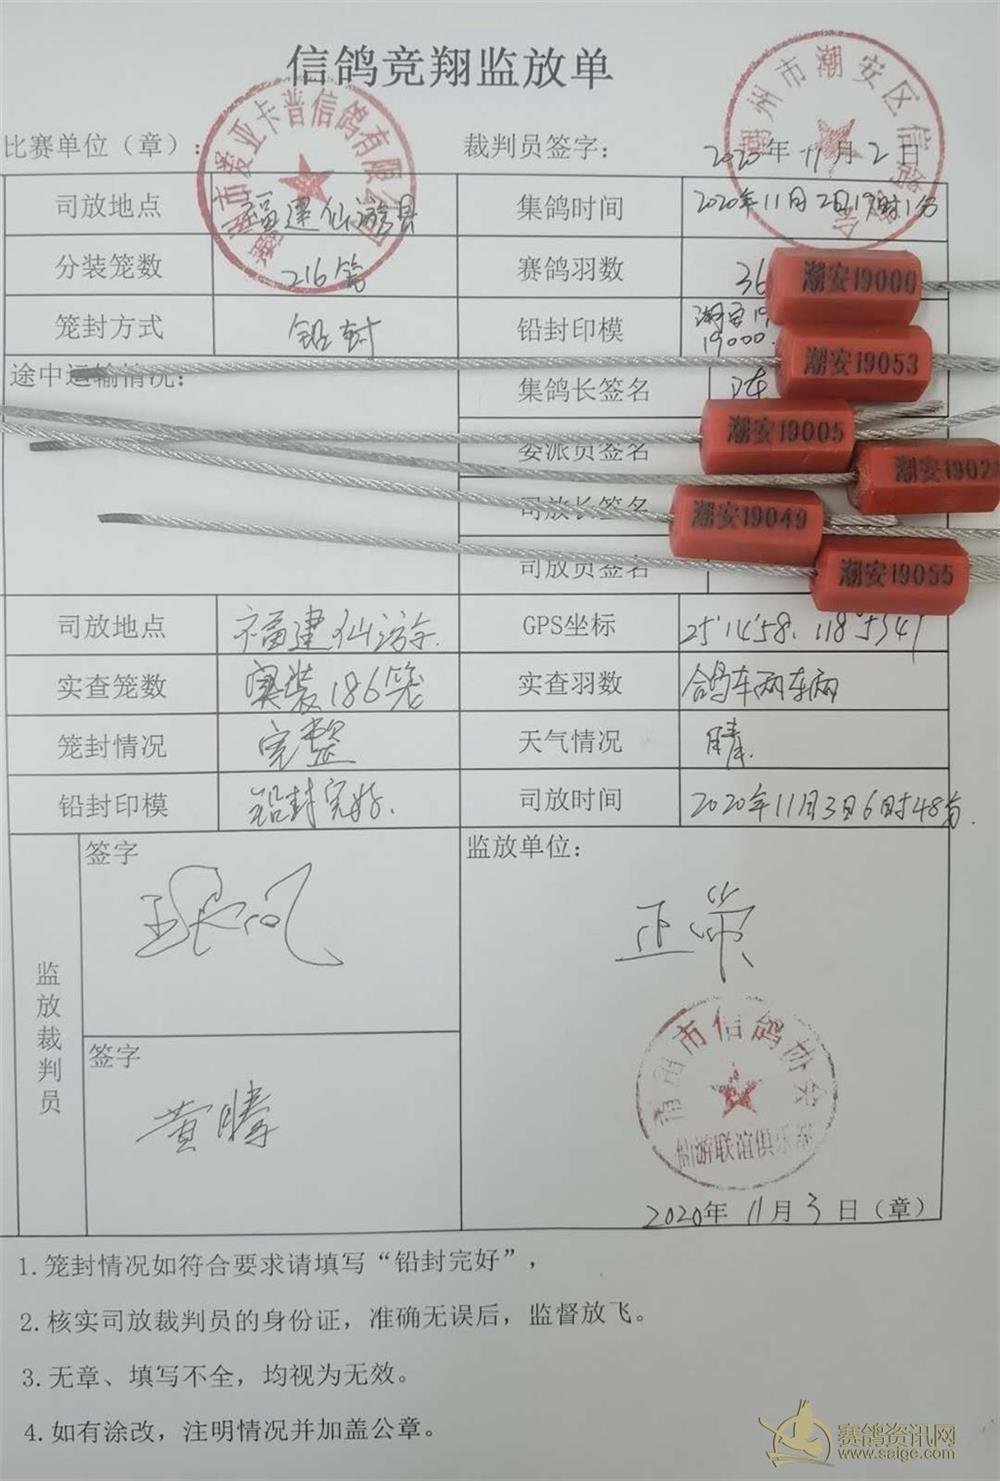 信鸽竞翔监放单
比赛单位（章）：
裁判员签字：
2020年11月2日
潮州市潮安区信鸽协会
亚卡普信鸽有限公司
司放地点 福建仙游县 集鸽时间 2020年11月2日19时1分
分装笼数 216笼 赛鸽羽数 36
笼封方式 铅封 铅封印模 潮安19 19000
潮安19000
途中运输情况： 集鸽长签名
潮安19053
委派员签名
潮安19005
潮安1902
司放长签名
潮安19049
司放员签名
潮安19055
司放地点 福建仙游 GPS坐标 25°14'58、118°5341
实查笼数 实装186笼 实查羽数 鸽车两车辆
笼封情况 完整 天气情况 晴
铅封印模 铅封完好. 司放时间 2020年11月3日6时48分.
监放裁判员
签字
签字
黄腾
监放单位：
正常
莆田市信鸽协会
仙游联谊俱乐部
2020年11月3日（章）
1.笼封情况如符合要求请填写“铅封完好”，
2.核实司放裁判员的身份证，准确无误后，监督放飞。
3.无章、填写不全，均视为无效。
4.如有涂改，注明情况并加盖公章。
赛鸽资讯网
www.saige.com